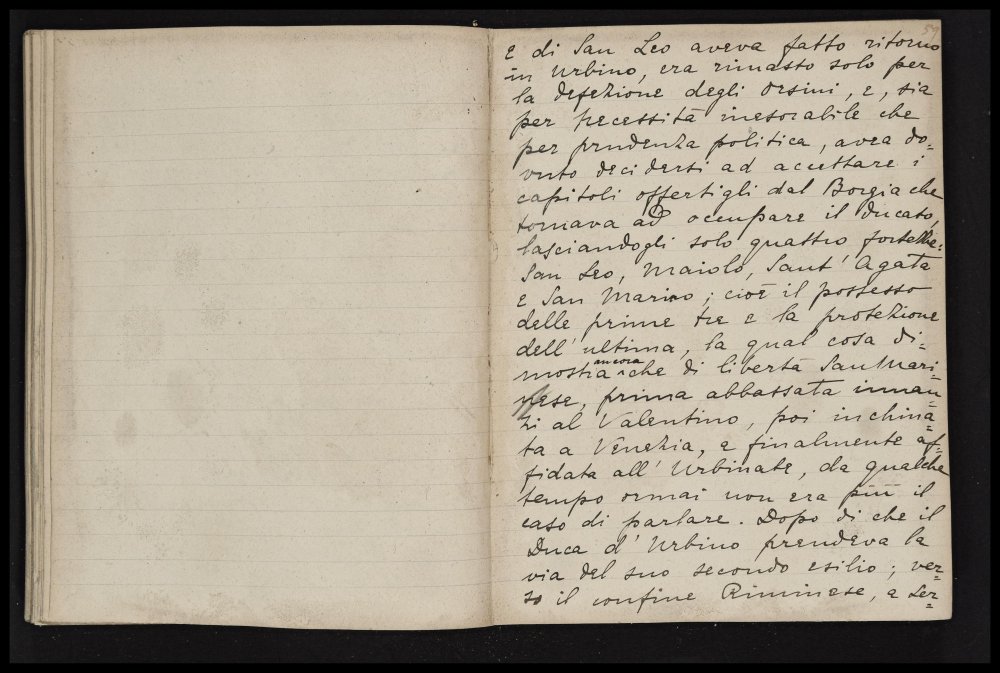 59
e di San Leo aveva fatto ritorno
in Urbino, era rimasto solo per
la defezione degli Orsini, e, sia
per necessità inesorabile che
per prudenza politica, avea do=
vuto decidersi ad accettare i
capitoli offertigli dal Borgia che
tornava ad occupare il ducato,
lasciandogli solo quattro fortezze:
San Leo, Maiolo, Sant' Agata
e San Marino; cioè il possesso
delle prime tre e la protezione
dell' ultima, la qual cosa di=
mostra ancora che di libertà San Mari=
nese, prima abbassata innan=
zi al Valentino, poi inchina=
ta a Venezia, e finalmente af=
fidata all' Urbinate, da qualche
tempo ormai non era più il
caso di parlare. Dopo di che il
Duca d' Urbino prendeva la
via del suo secondo esilio; ver=
so il confine Riminese, e Ser=